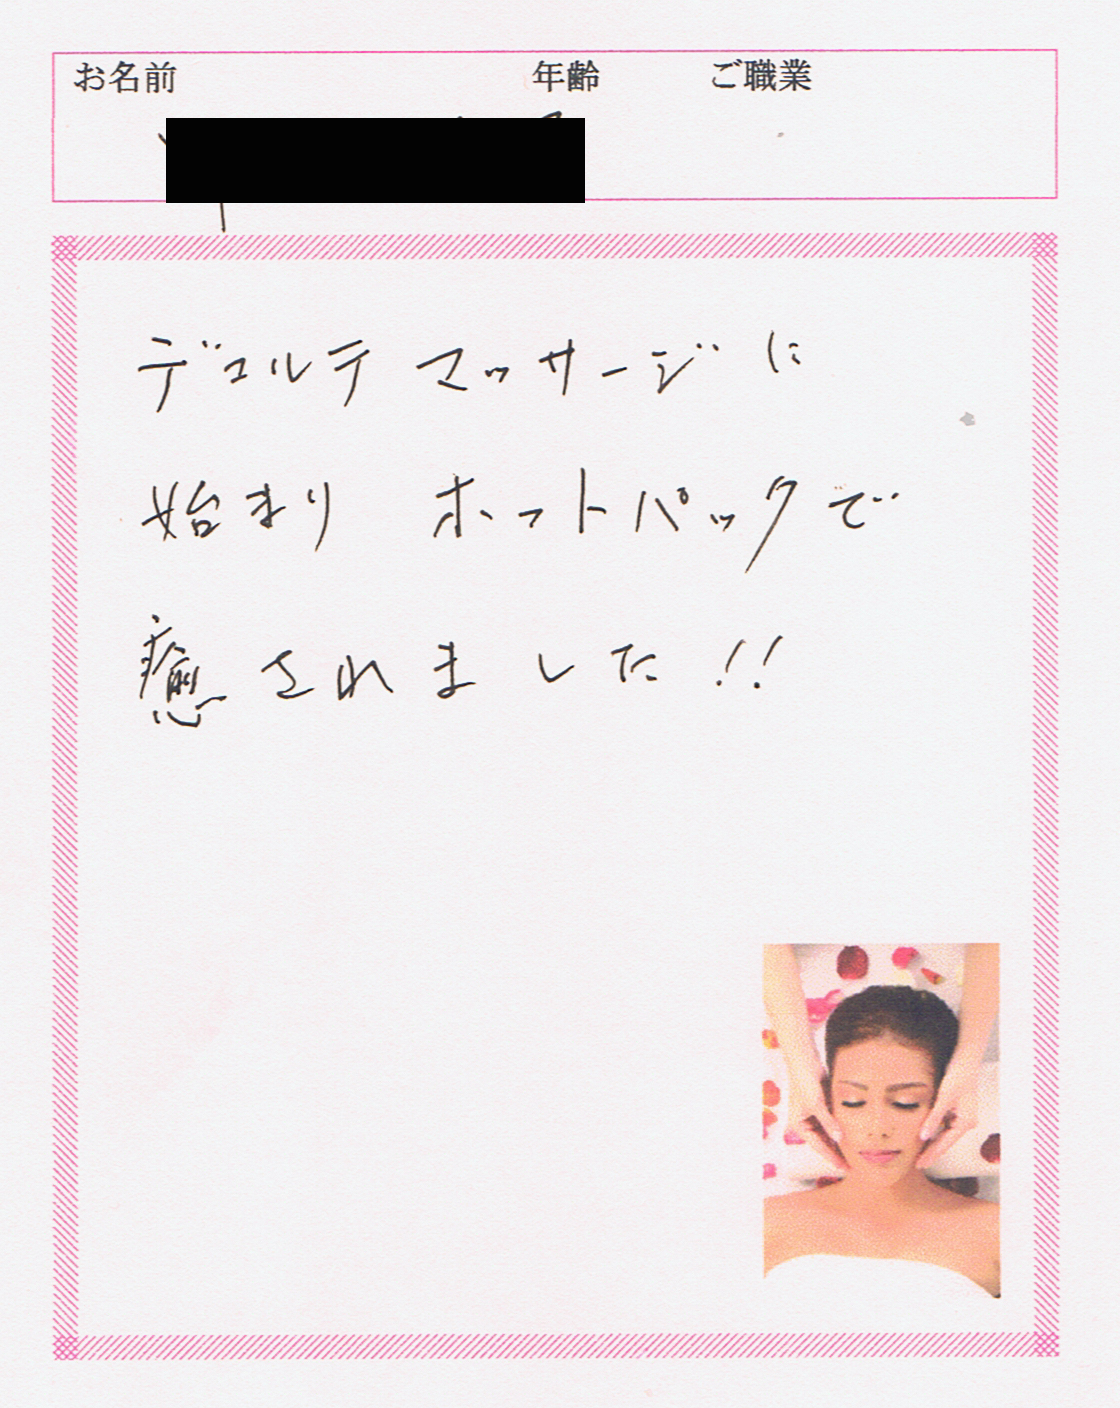 お名前 年齢 ご職業
デコルテ マッサージに
始まり ホットパックで
癒されました!!